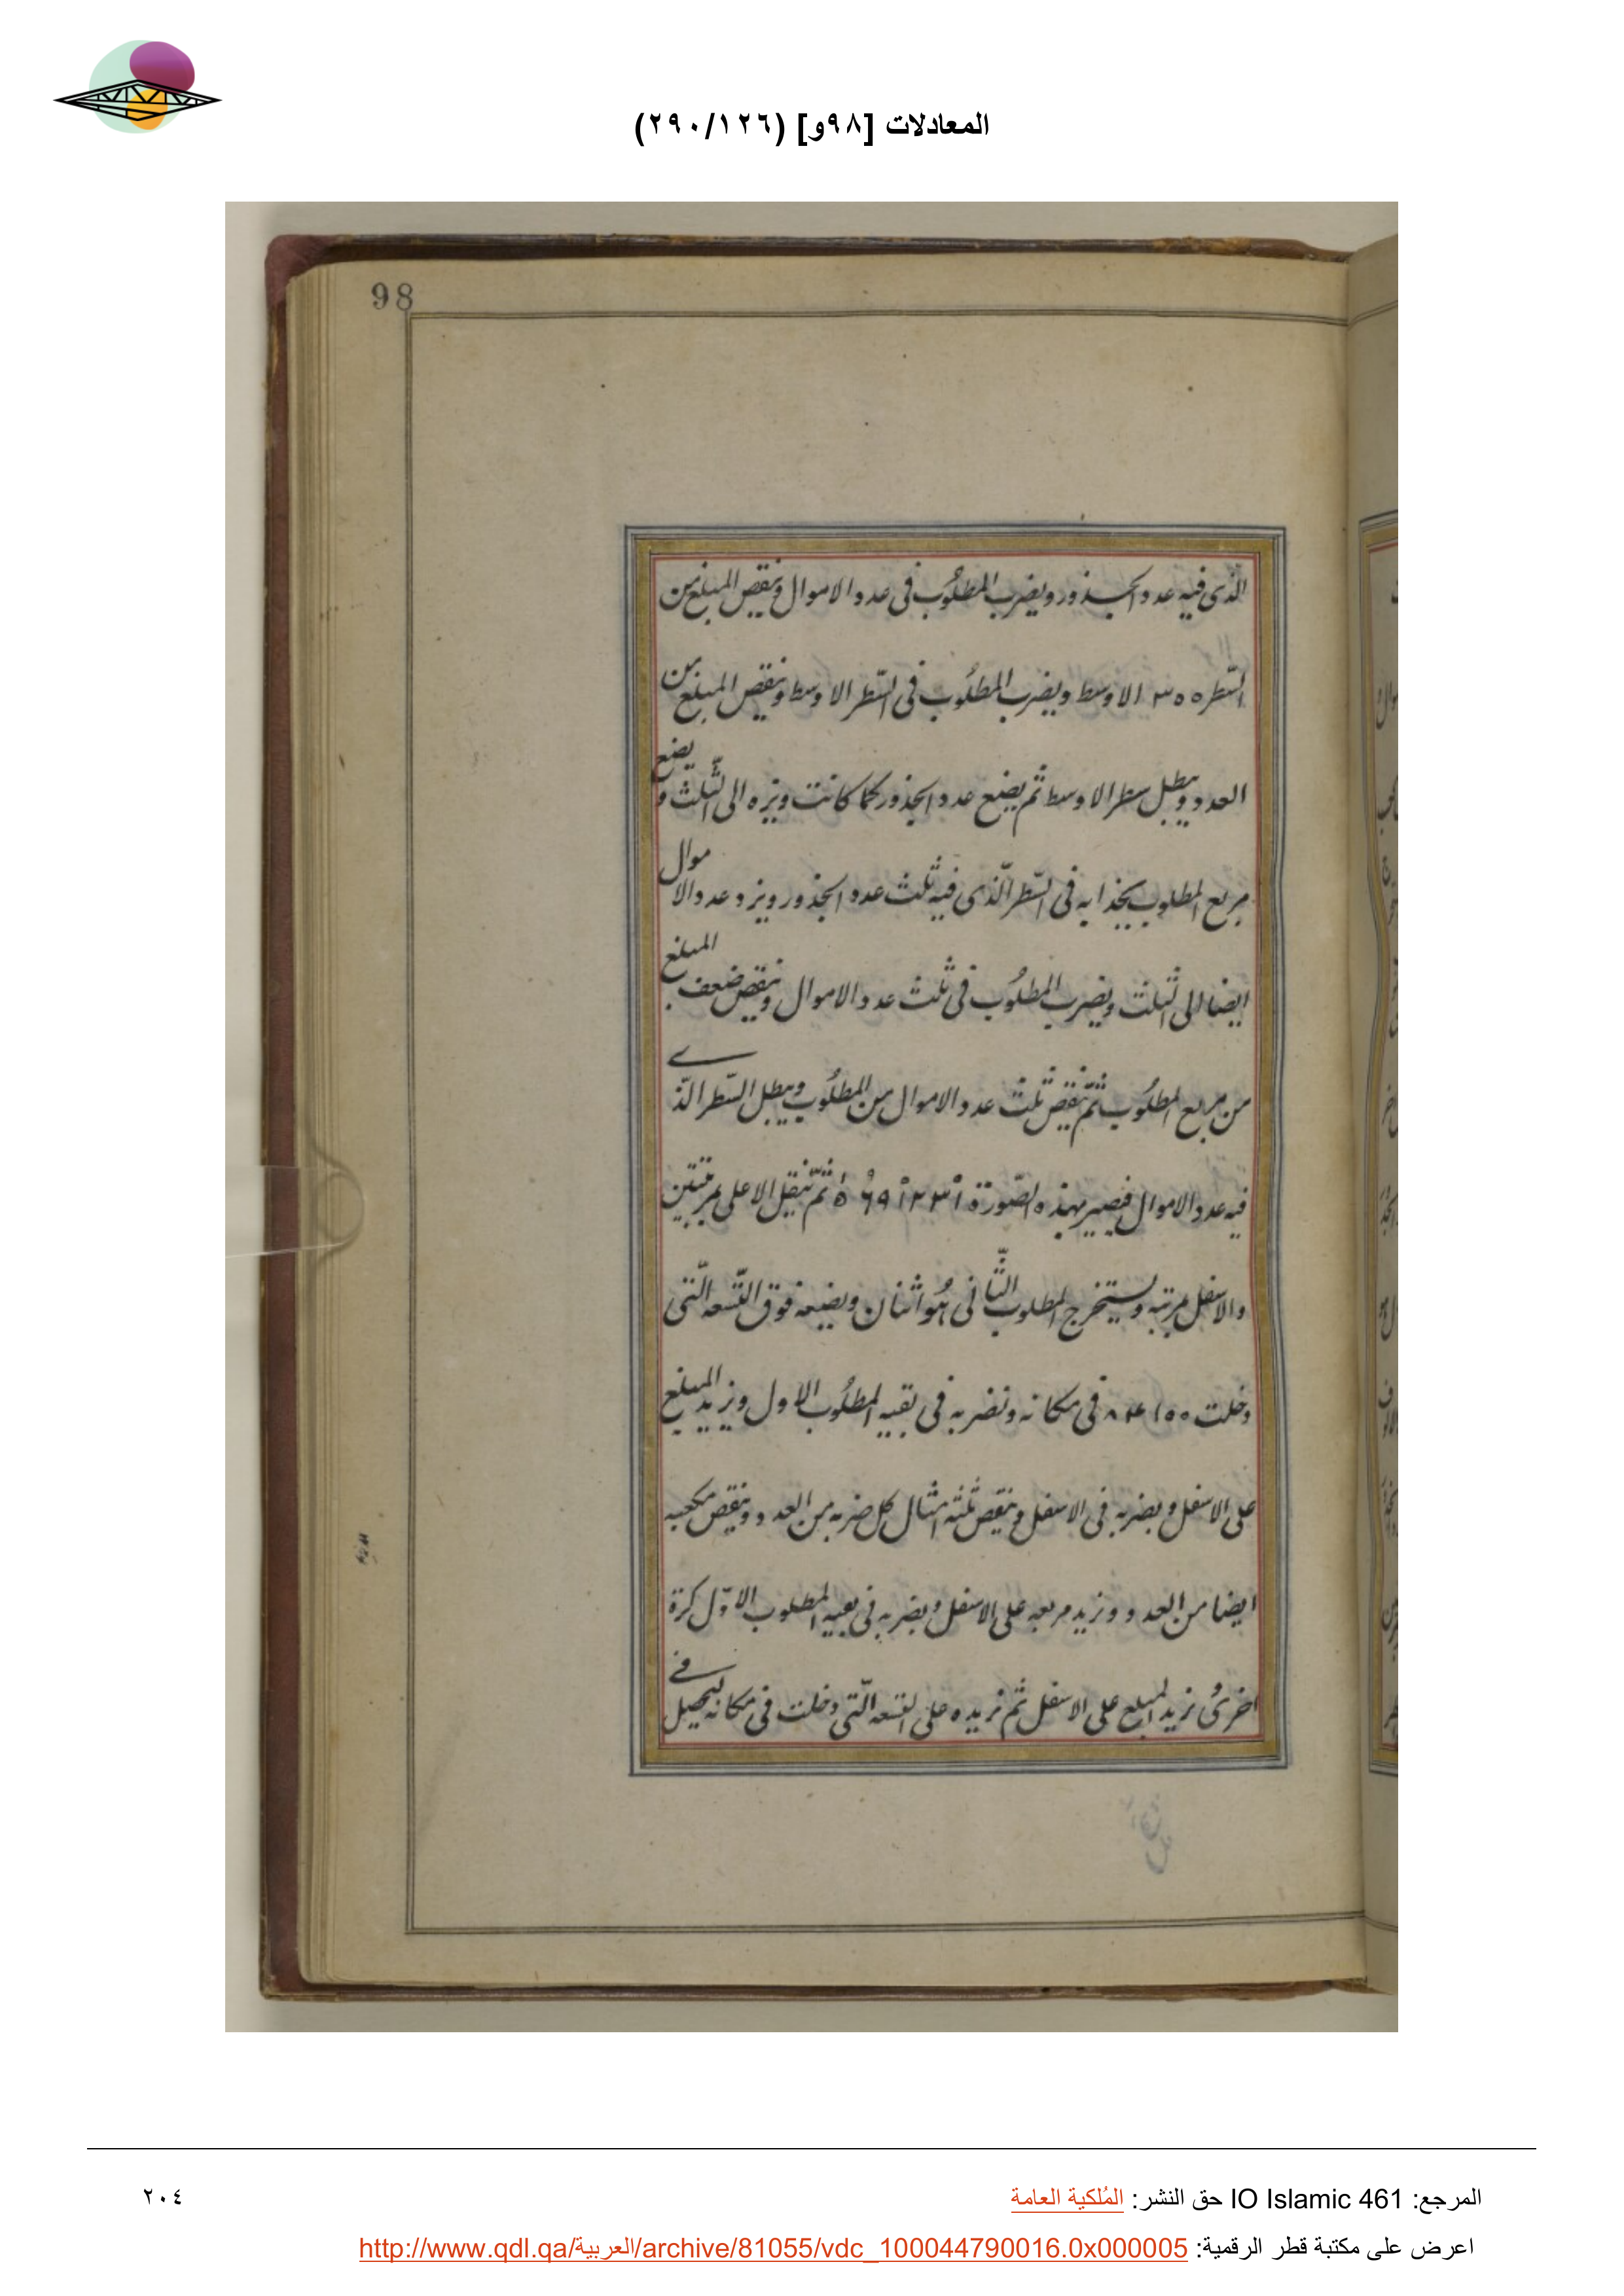 المعادلات [٩٨و] (٢٩٠/١٢٦)
98
الّذى فيه عدد الجذور ويضرب المطلُوب فى عدد الاموال وننقص المبلغ من
السّطر ٣٥٥ الاوسط ويضرب المطلُوب فى السّطر الاوسط وننقص المبلغ من
العدد ويبطل سطر الاوسط ثم يضع عدد الجذور كما كانت ونرده الى الثلث و يضع
مربع المطلوب بحذايه فى السّطر الّذى فيه ثلث عدد الجذور ونرد عدد الاموال
ايضا الى الثلث ويضرب المطلُوب فى ثلث عدد الاموال وننقص ضعف المبلغ
من مربع المطلُوب ثمّ ننقص ثلث عدد الاموال من المطلُوب ويبطل السّطر الذّى
فيه عدد الاموال فيصير بهذه الصّورة ثمّ ننقل الاعلى بمرتبتين
والاسفل بمرتبه ونستخرج المطلوب الثّانى هُو اثنان ونضعه فوق التّسعه الّتى
دخلت فى مكانه ونضربه فى بقيه المطلُوب الاول ونزيد المبلغ
على الاسفل ويضربه فى الاسفل وننقص ثلثه امثال كل ضربه من العدد وننقص مكعبه
ايضا من العدد ونزيد مربعه على الاسفل ويضربه فى بقيه المطلوب الاوّل كرة
اخرىُ نزيد المبلع على الاسفل ثم نزيده على التسعه الّتى دخلت فى مكانه ليحصل فى
المرجع: IO Islamic 461 حق النشر: المُلكية العامة
٢٠٤
اعرض على مكتبة قطر الرقمية: http://www.qdl.qa/العربية/archive/81055/vdc_100044790016.0x000005